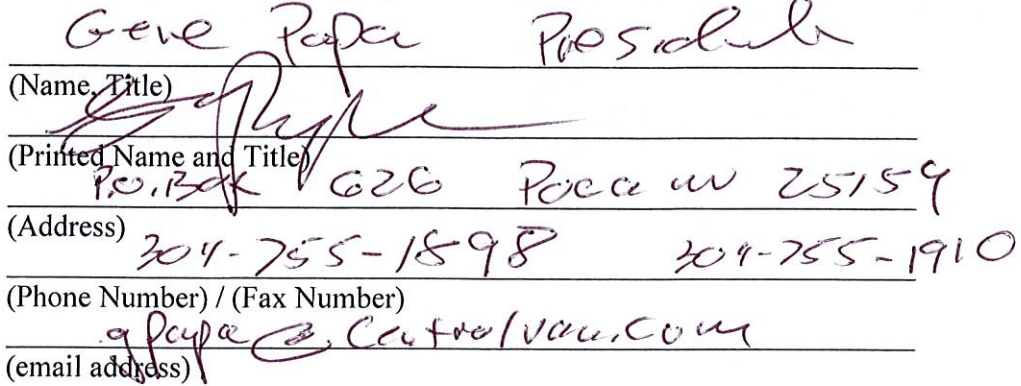 Gene Papa President
(Name, Title)
(Printed Name and Title)
P.O. Box 626 Poca WV 25159
(Address)
304-755-1898 304-755-1910
(Phone Number) / (Fax Number)
gpapa@centralvan.com
(email address)